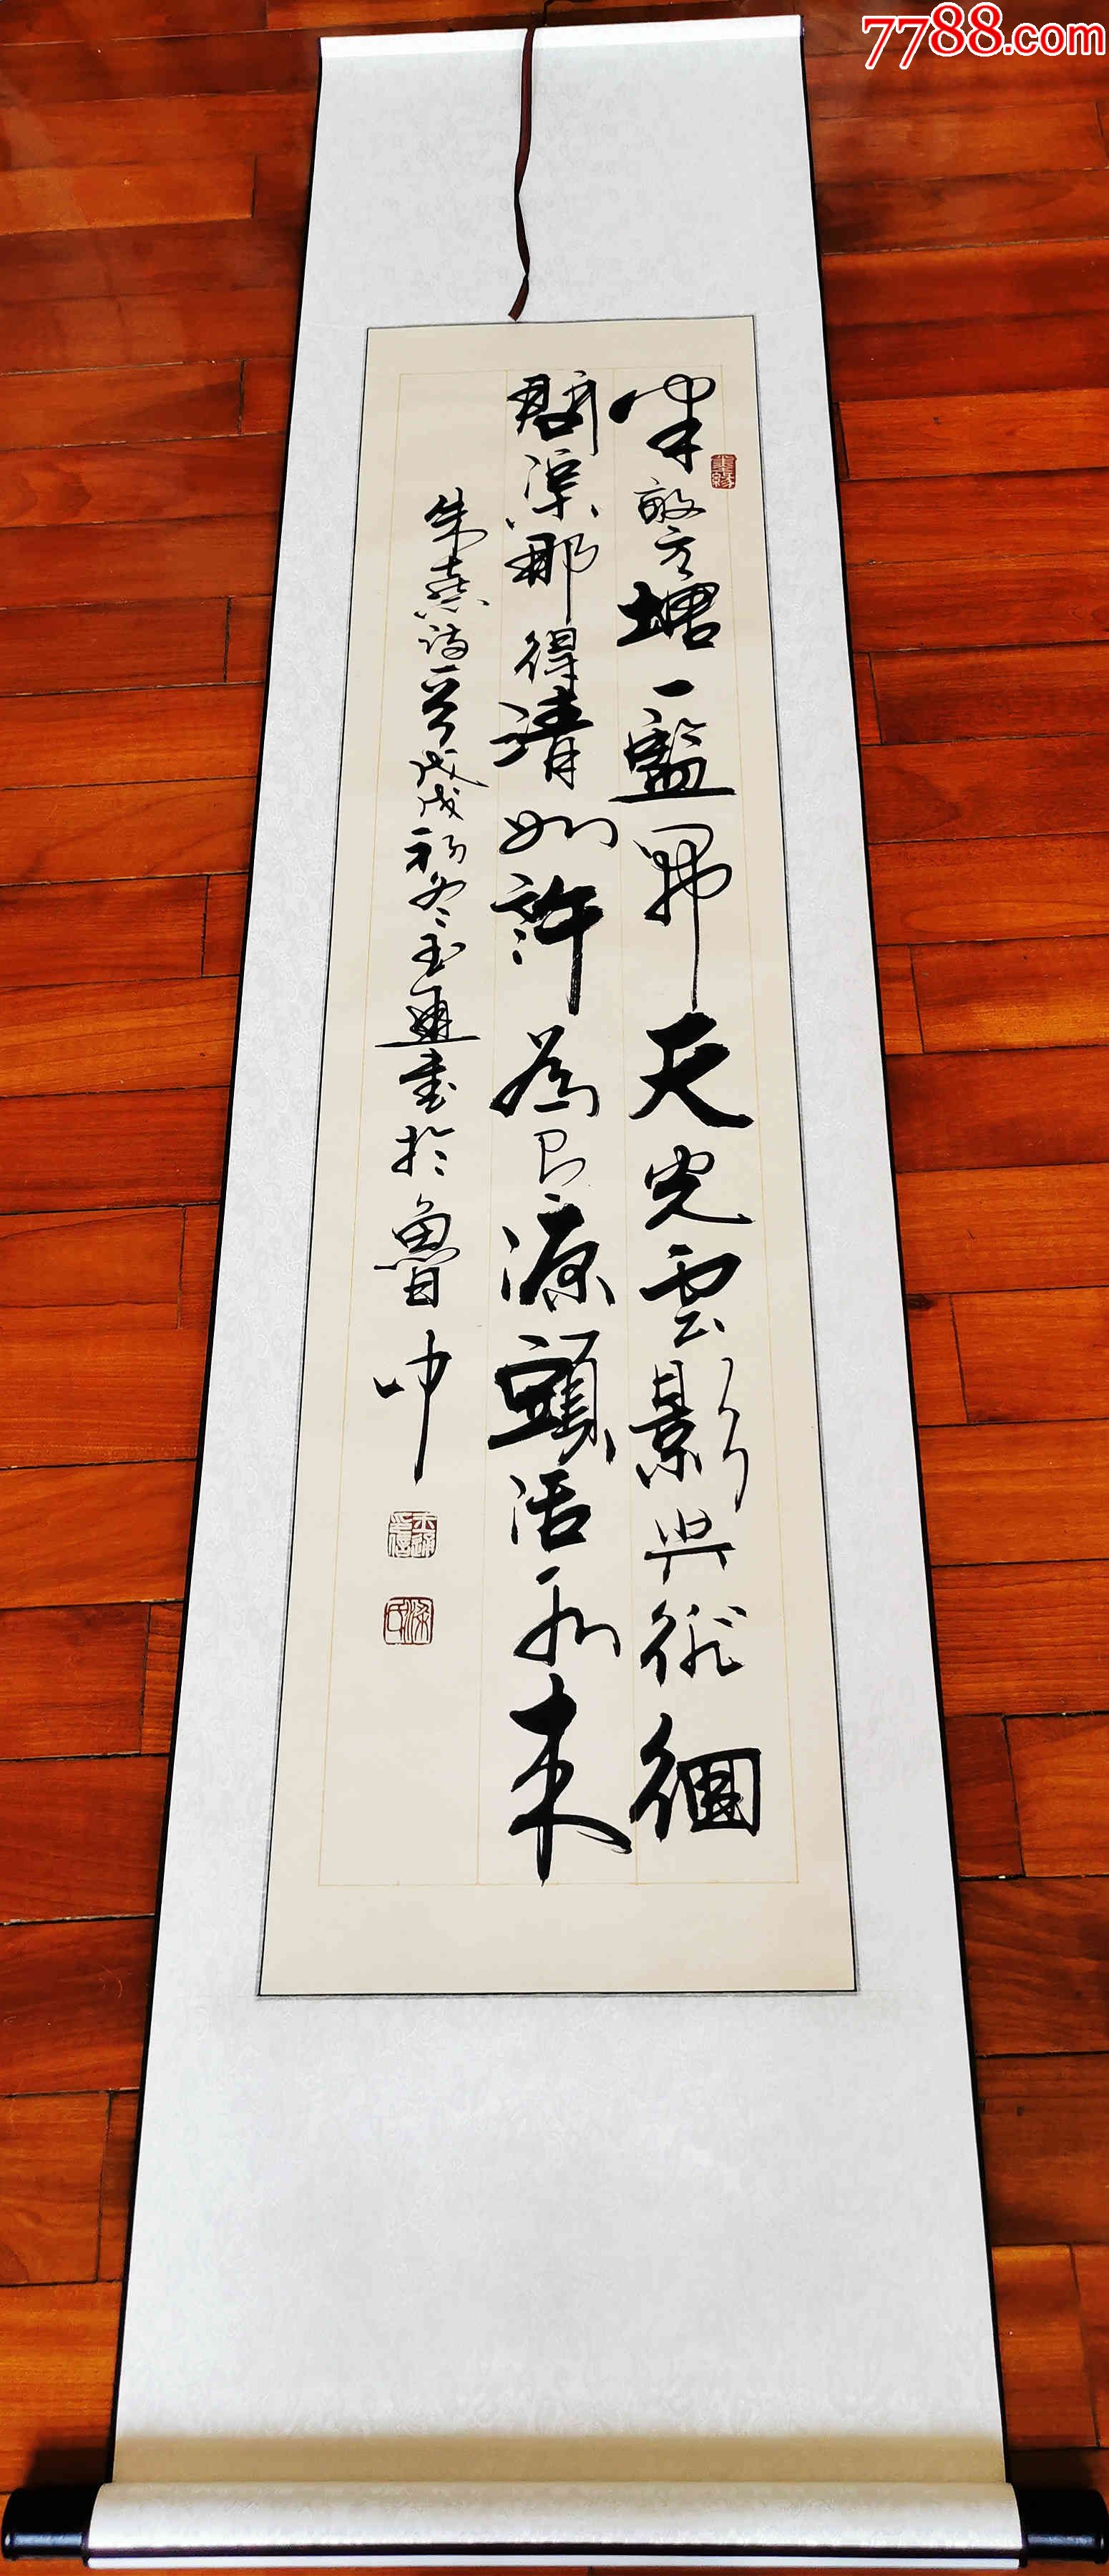 7788.com
半畝方塘一鑒開天光雲影共徘徊
問渠那得清如許為有源頭活水來
朱熹詩一首戊戌初冬玉通書於魯中